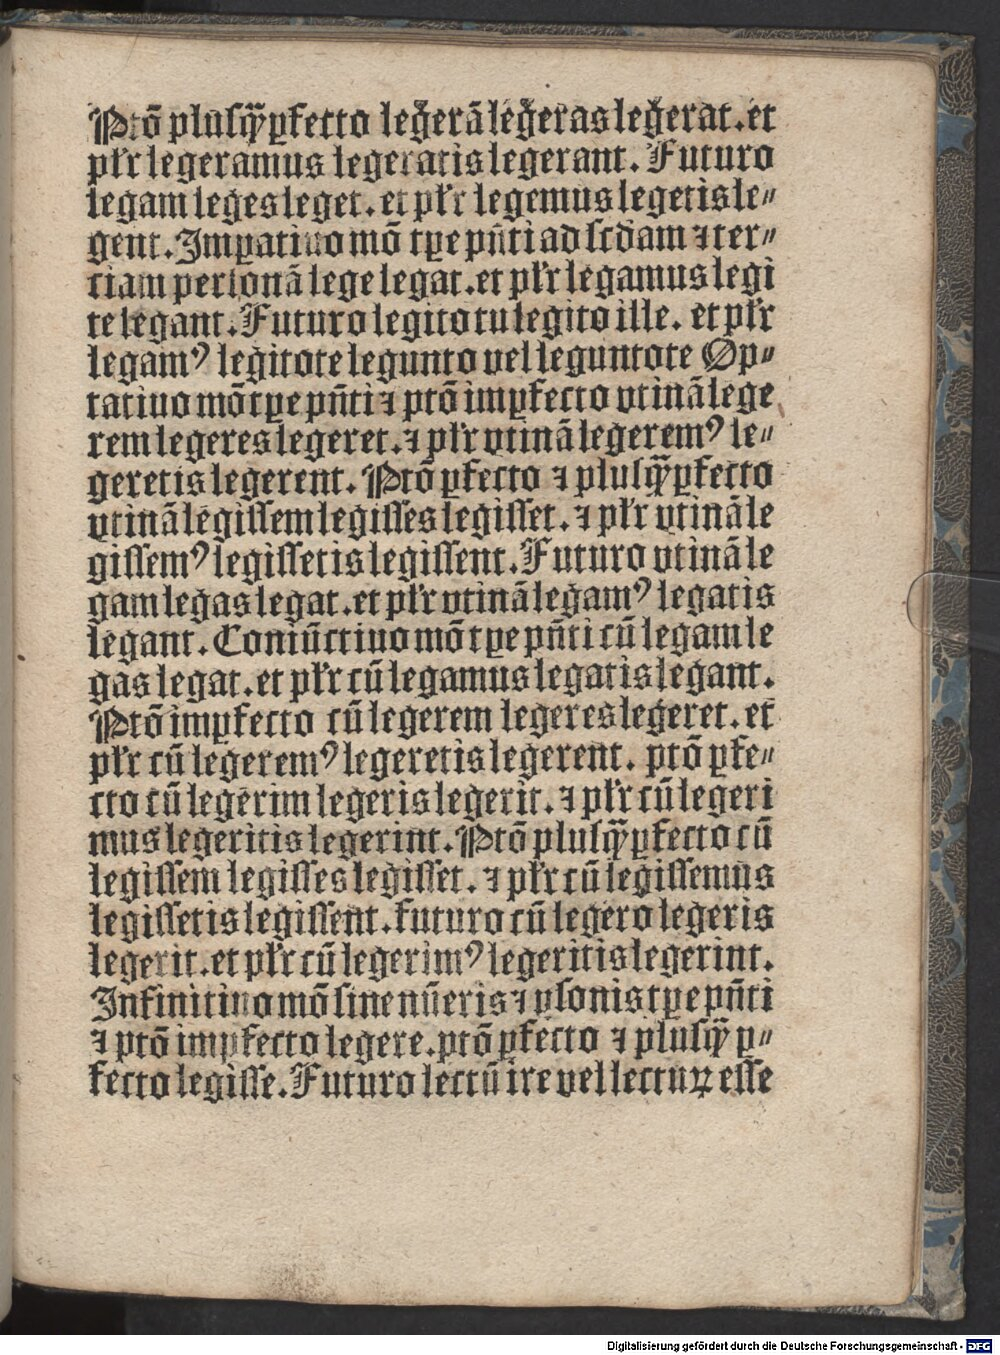 Ptō pluſꝙ̃ꝑfecto legerā legeras legerat. et
płr legeramus legeratis legerant. Futuro
legam leges leget. et płr legemus legetis le⸗
gent. Imꝑatiuo mō tꝑe pñti ad ſcdam ⁊ ter⸗
tiam perſonā lege legat. et płr legamus legi
te legant. Futuro legito tu legito ille. et płr
legamꝰ legitote legunto vel leguntote Op⸗
tatiuo mō tꝑe pñti ⁊ ptō imꝑfecto vtinā lege
rem legeres legeret. ⁊ płr vtinā legeremꝰ le⸗
geretis legerent. Ptō ꝑfecto ⁊ pluſꝙ̃ꝑfecto
vtinā legiſſem legiſſes legiſſet. ⁊ płr vtinā le
giſſemꝰ legiſſetis legiſſent. Futuro vtinā le
gam legas legat. et płr vtinā legamꝰ legatis
legant. Coniūctiuo mō tꝑe pñti cū legam le
gas legat. et płr cū legamus legatis legant.
Ptō impꝑfecto cū legerem legeres legeret. et
płr cū legeremꝰ legeretis legerent. ptō ꝑfe⸗
cto cū legerim legeris legerit. ⁊ płr cū legeri
mus legeritis legerint. Ptō pluſꝙ̃ꝑfecto cū
legiſſem legiſſes legiſſet. ⁊ płr cū legiſſemus
legiſſetis legiſſent. futuro cū legero legeris
legerit. et płr cū legerimꝰ legeritis legerint.
Infinitiuo mō ſine nūeris ⁊ ꝑſonis tꝑe pñti
⁊ ptō imꝑfecto legere. ptō ꝑfecto ⁊ pluſꝙ̃ ꝑ⸗
fecto legiſſe. Futuro lectū ire vel lecturꝝ eſſe
Digitalisierung gefördert durch die Deutsche Forschungsgemeinschaft - DFG